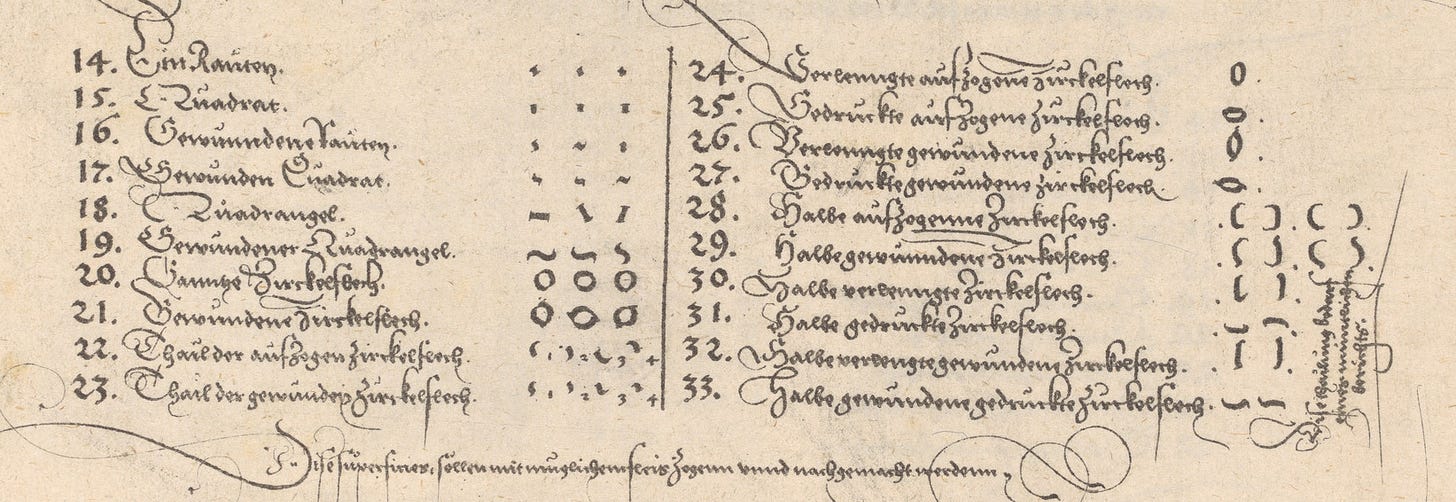 14. Ein Rauten.
15. Quadrat.
16. Gewunndene Rauten.
17. Gewunden Quadrat.
18. Quadrangel.
19. Gewundener Quadrangel.
20. Ganntze Zirckelflech.
21. Gewundene Zirckelflech.
22. Thail der aufzogen Zirckelflech.
23. Thail der gewunden Zirckelflech.
24. Verlenngte aufzogene Zirckelflech.
25. Gedruckte aufzogene Zirckelflech.
26. Verlenngte gewundene Zirckelflech.
27. Gedruckte gewundene Zirckelflech.
28. Halbe aufzogenne Zirckelflech.
29. Halbe gewunndene Zirckelflech.
30. Halbe verlenngte Zirckelflech.
31. Halbe gedruckte Zirckelflech.
32. Halbe verlengte gewundene Zirckelflech.
33. Halbe gewundene gedruckte Zirckelflech.
Dise superficies, sollen mit muglichem fleis zogenn vnnd nachgemacht werdenn